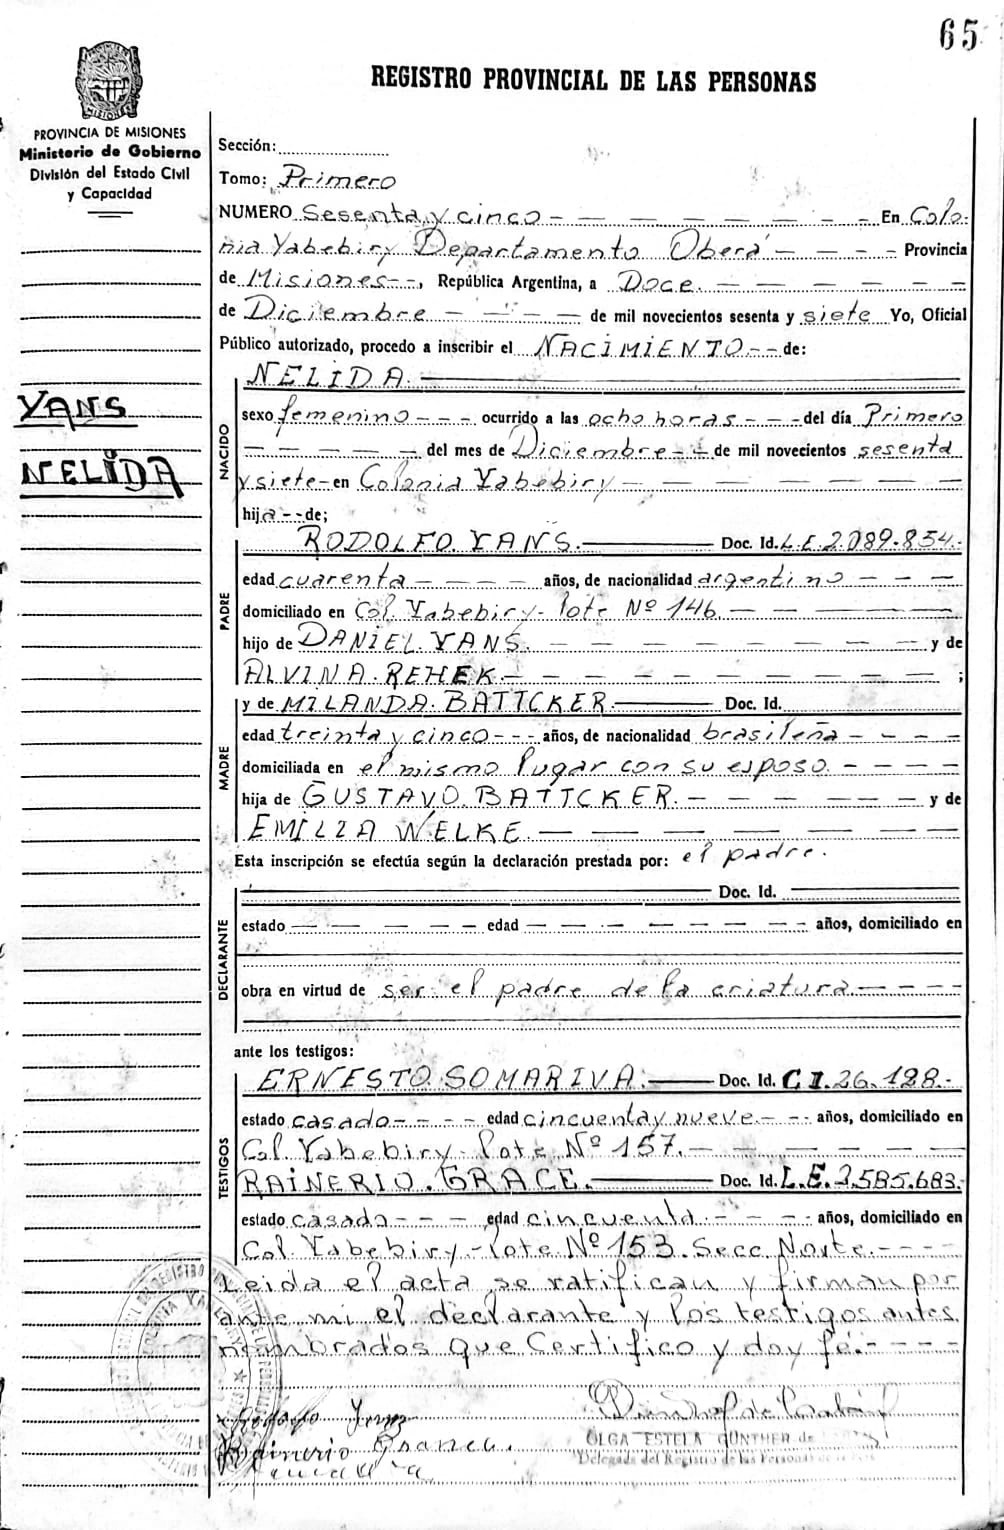 65
REGISTRO PROVINCIAL DE LAS PERSONAS
PROVINCIA DE MISIONES
Ministerio de Gobierno
División del Estado Civil
y Capacidad
YANS
NELIDA
Sección:
Tomo: Primero
NUMERO Sesenta y cinco - - - - - - - - En Colo-
nia Yabebiry Departamento Oberá - - - - Provincia
de Misiones - -, República Argentina, a Doce - - - - - -
de Diciembre - - - - de mil novecientos sesenta y siete Yo, Oficial
Público autorizado, procedo a inscribir el NACIMIENTO - - de:
NELIDA.
NACIDO
sexo femenino - - - ocurrido a las ocho horas - - - del día Primero
- - - - - del mes de Diciembre - - de mil novecientos sesenta
y siete - en Colonia Yabebiry - - - - - - -
hija - - de;
PADRE
RODOLFO YANS. Doc. Id. L.E. 2.089.854.-
edad cuarenta - - - - años, de nacionalidad argentino - - -
domiciliado en Col. Yabebiry - lote Nº 146. - - - -
hijo de DANIEL YANS. - - - - - - - - y de
ALVINA REHEK - - - - - - - - - - ;
MADRE
y de MILANDA BATTCKER Doc. Id.
edad treinta y cinco - - - años, de nacionalidad brasileña - - - -
domiciliada en el mismo lugar con su esposo. - - - -
hija de GUSTAVO BATTCKER. - - - - - - y de
EMILIA WELKE. - - - - - - -
Esta inscripción se efectúa según la declaración prestada por: el padre.
DECLARANTE
Doc. Id.
estado - - - - - edad - - - - - - - - años, domiciliado en
obra en virtud de ser el padre de la criatura - - - -
ante los testigos:
TESTIGOS
ERNESTO SOMARIVA. Doc. Id. C.I. 26.128.-
estado casado - - - - edad cincuenta y nueve - - - años, domiciliado en
Col. Yabebiry - lote Nº 157. - - - - - -
RAINERIO GRACE. Doc. Id. L.E. 3.585.683.-
estado casado - - - edad cincuenta - - - - años, domiciliado en
Col Yabebiry - lote Nº 153. Secc. Norte. - - - -
Leida el acta se ratifican y firman por
ante mi el declarante y los testigos antes
nombrados que Certifico y doy fé. - - - -
OLGA ESTELA GÜNTHER de
Delegada del Registro de las Personas